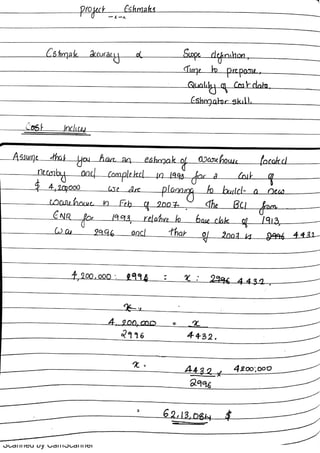 project Eshmates
-x-x
Eshmate accuracy α Scope definihon,
Time to prepare,
Quality of Cost data.
Eshmator skill.
Cost Indices
Assume that you have an eshmate of warehouse located
nearby and completed in 1993 for a Cost of
$ 4,200,000 we are planning to build a new
warehouse in Feb of 2007. The BCI from
ENR for 1993, relative to base date of 1913,
was 2996 and that of 2007 is 4432.
4,200.000 : = x : 2996 4432.
4,200,000 = x
2996 4432.
x = 4432 x 4200,000
2996
= 62,13,084 $
Scanned by CamScanner